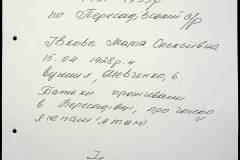 по Пересадівській с/р
Івкова Марія Олексіївна
15.04.1928 р.н
вулиця Шевченко, 6.
Батьки проживали
в Пересадівці, про голод
я запам'ятала